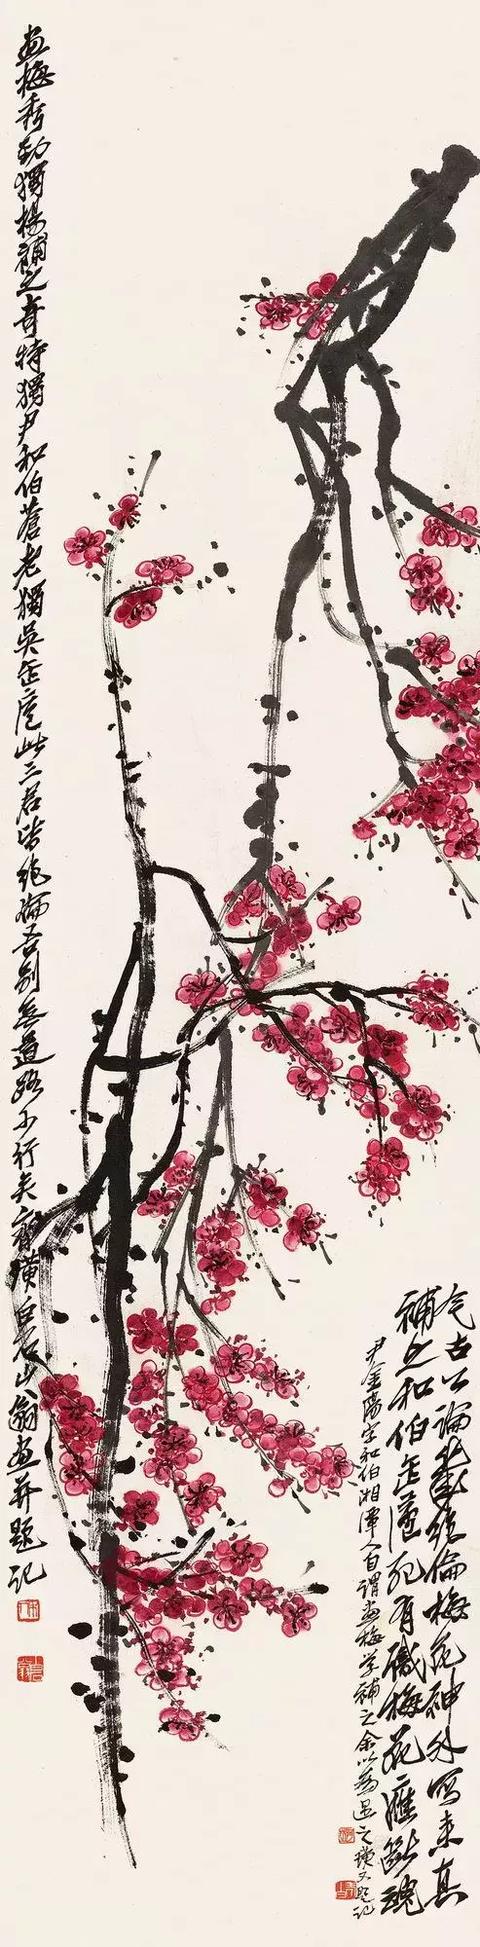 今古公論幾絕倫梅花神外寫來真
補之和伯缶廬死有識梅花應斷魂
尹金陽字和伯湘潭人自謂畫梅學補之余以為過之璜又題記
畫梅秀勁獨楊補之奇特獨尹和伯蒼老獨吳缶廬此三君皆絕倫吾別無道路可行矣齊璜白石山翁畫并題記